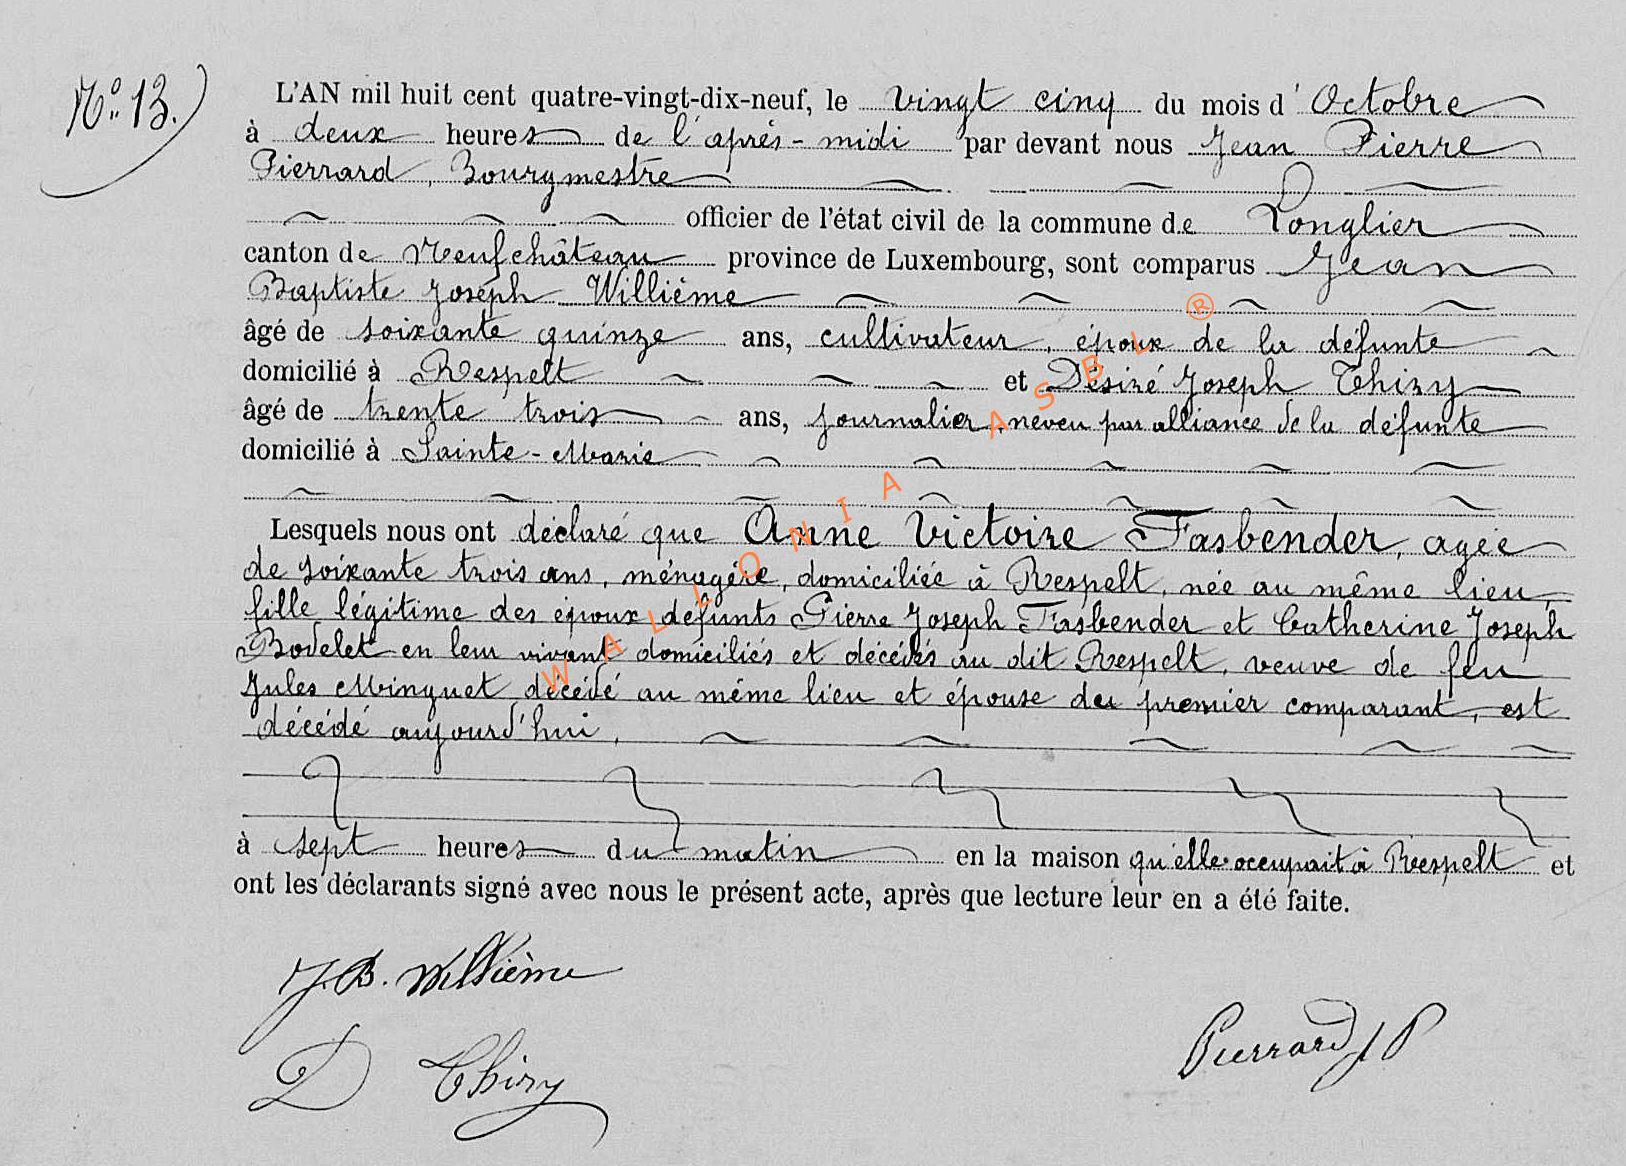 N° 13.
L'AN mil huit cent quatre-vingt-dix-neuf, le vingt cinq du mois d'Octobre
à deux heures de l'après-midi par devant nous Jean Pierre
Pierrard, Bourgmestre
officier de l'état civil de la commune de Longlier
canton de Neufchâteau province de Luxembourg, sont comparus Jean
Baptiste Joseph Willième
âgé de soixante quinze ans, cultivateur, époux de la défunte
domicilié à Respelt et Désiré Joseph Thiry
âgé de trente trois ans, journalier, neveu par alliance de la défunte
domicilié à Sainte-Marie
Lesquels nous ont déclaré que Anne Victoire Fasbender, agée
de soixante trois ans, ménagère, domiciliée à Respelt, née au même lieu,
fille légitime des époux défunts Pierre Joseph Fasbender et Catherine Joseph
Bodelet en leur vivant domiciliés et décédés au dit Respelt, veuve de feu
Jules Minguet décédé au même lieu et épouse du premier comparant, est
décédé aujourd'hui,
à sept heures du matin en la maison qu'elle occupait à Respelt et
ont les déclarants signé avec nous le présent acte, après que lecture leur en a été faite.
J.B. Willième
D Thiry
Pierrard J P
WALLONIA ASBL ®